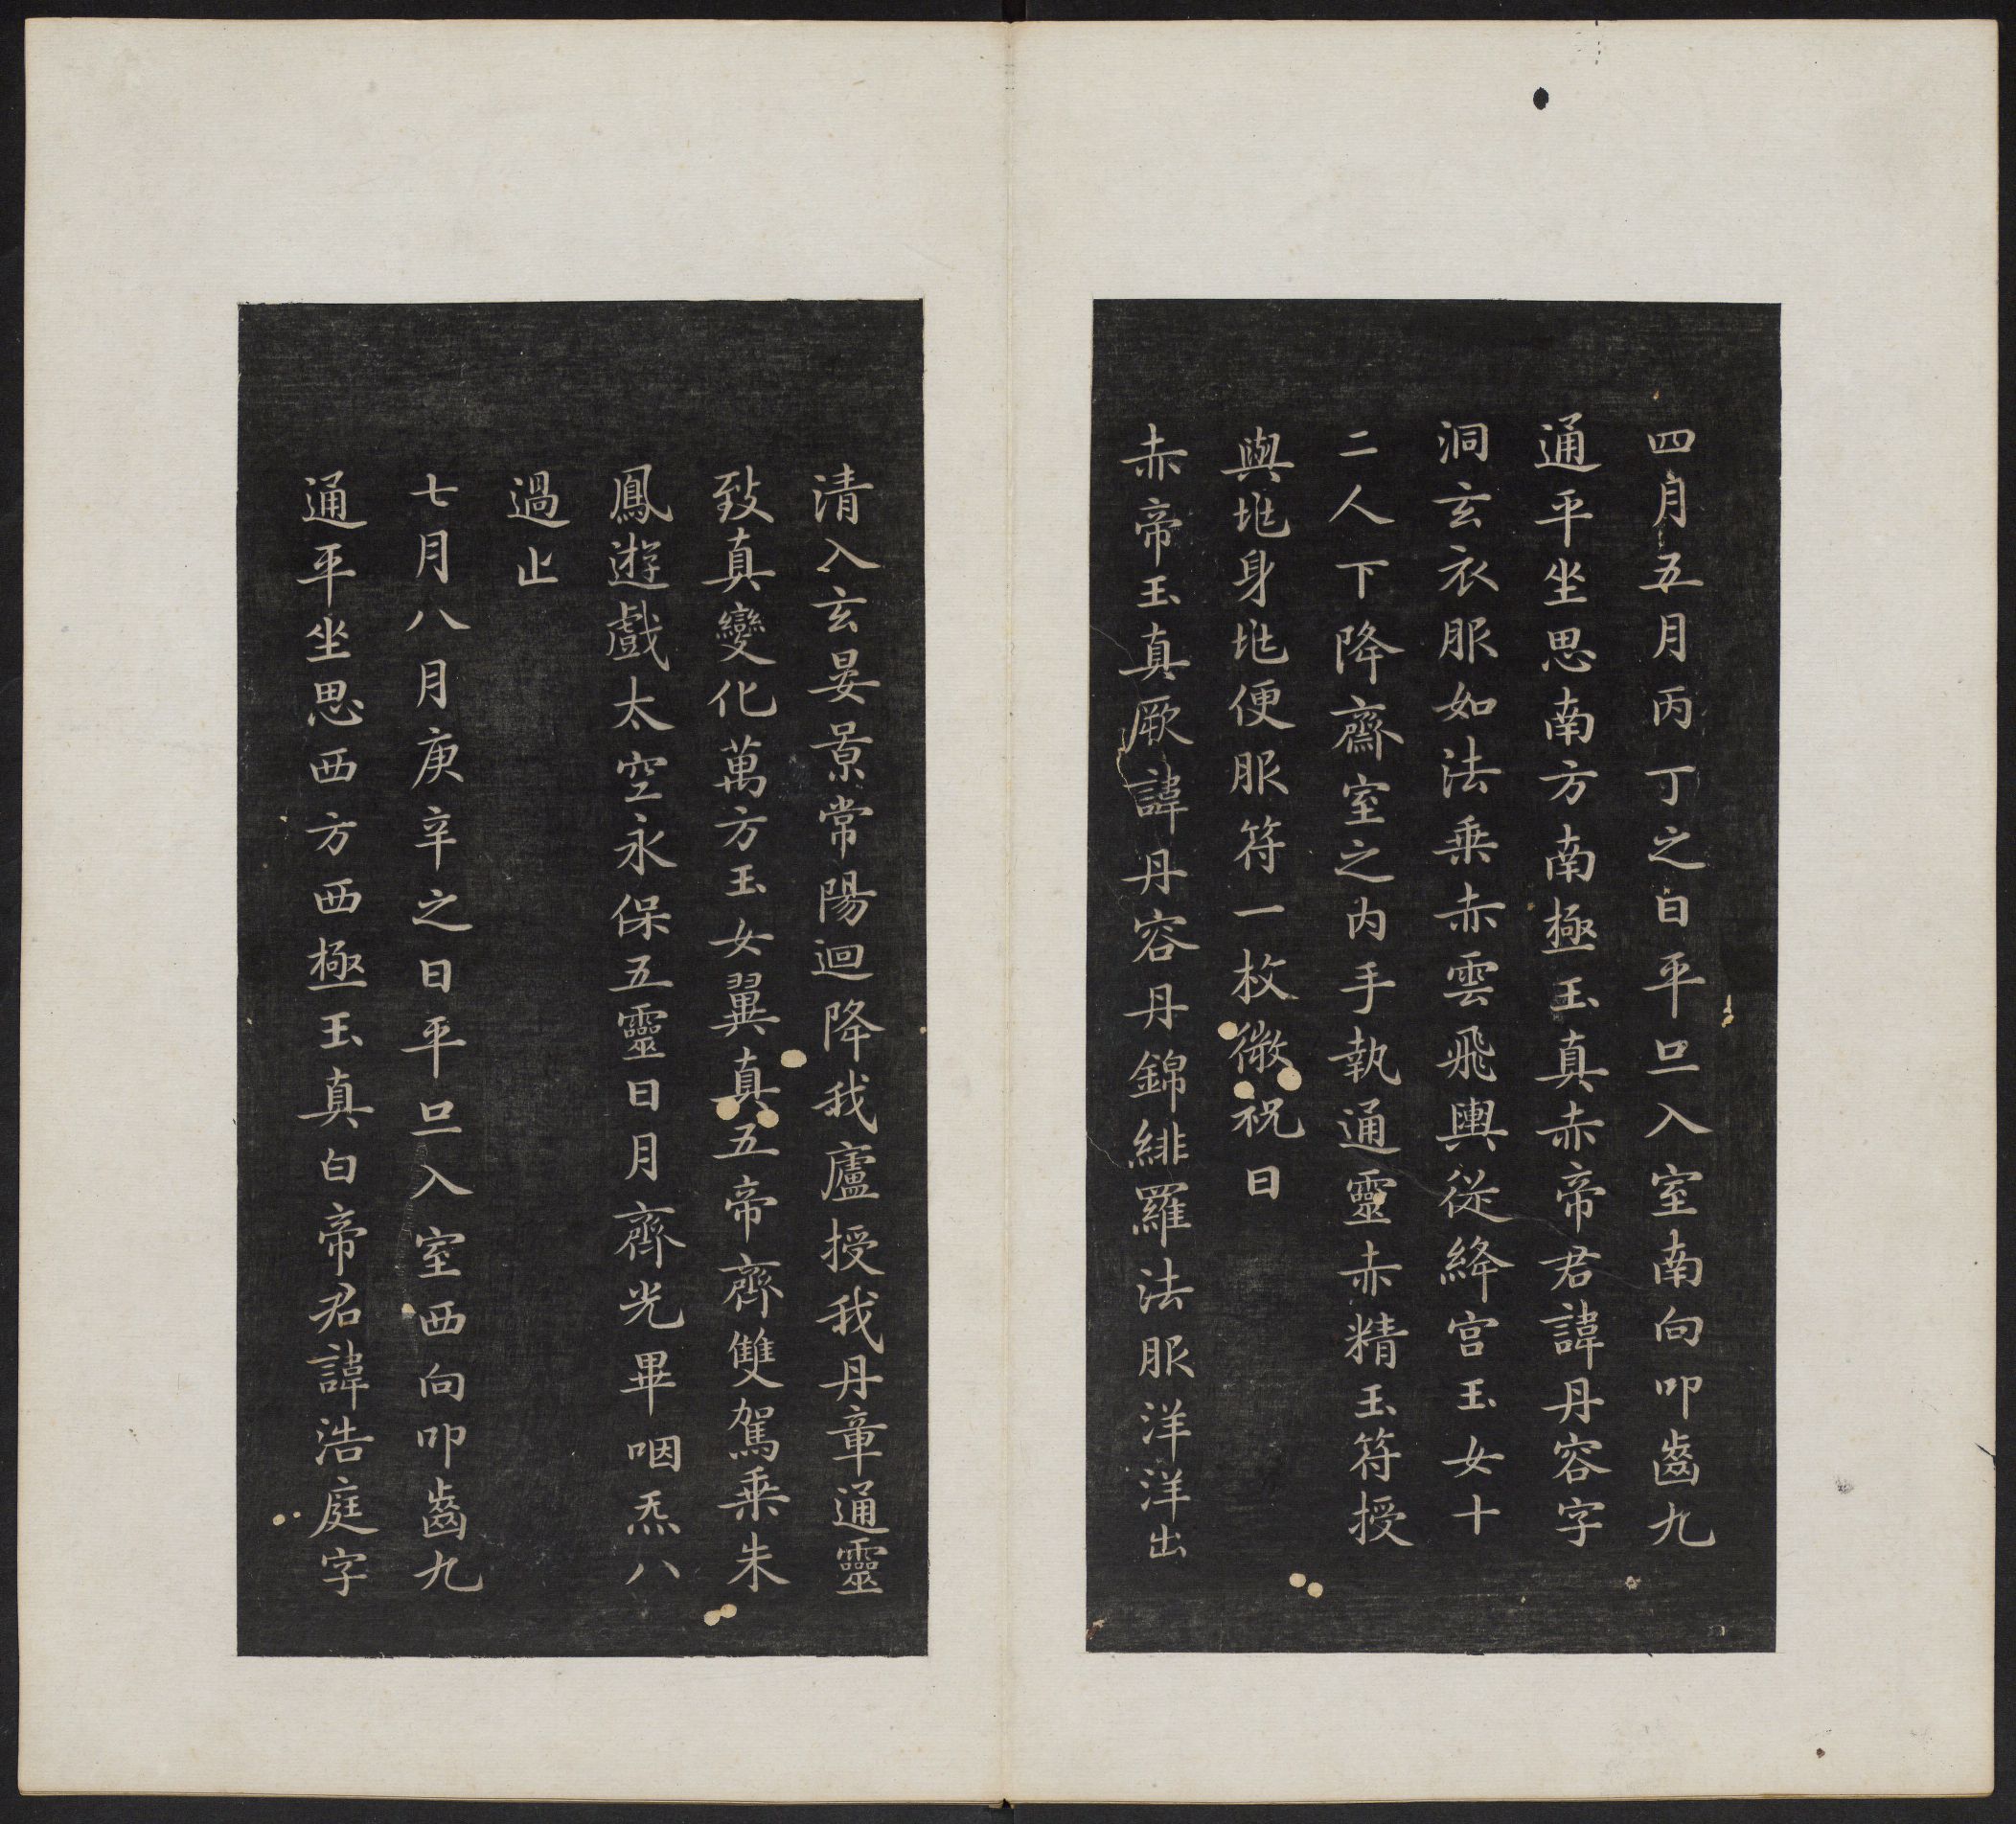 四月五月丙丁之日平旦入室南向叩齒九
通平坐思南方南極玉真赤帝君諱丹容字
洞玄衣服如法乗赤雲飛輿從絳宮玉女十
二人下降齋室之内手執通靈赤精玉符授
與兆身兆便服符一枚微祝曰
赤帝玉真厥諱丹容丹錦緋羅法服洋洋出
清入玄晏景常陽迴降我廬授我丹章通靈
致真變化萬方玉女翼真五帝齊雙駕乗朱
鳳遊戲太空永保五靈日月齊光畢咽炁八
過止
七月八月庚辛之日平旦入室西向叩齒九
通平坐思西方西極玉真白帝君諱浩庭字